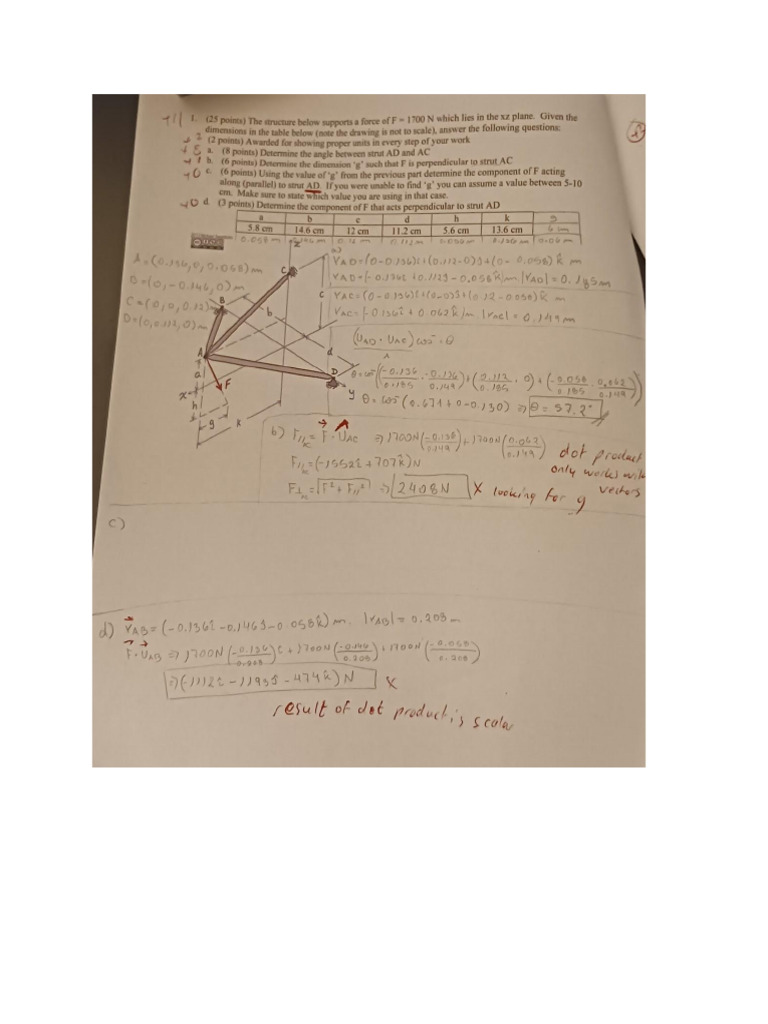 +11 1. (25 points) The structure below supports a force of F = 1700 N which lies in the xz plane. Given the
dimensions in the table below (note the drawing is not to scale), answer the following questions:
+2 (2 points) Awarded for showing proper units in every step of your work
+5 a. (8 points) Determine the angle between strut AD and AC
+1 b. (6 points) Determine the dimension 'g' such that F is perpendicular to strut AC
+0 c. (6 points) Using the value of 'g' from the previous part determine the component of F acting
along (parallel) to strut AD. If you were unable to find 'g' you can assume a value between 5-10
cm. Make sure to state which value you are using in that case.
+0 d. (3 points) Determine the component of F that acts perpendicular to strut AD
a b c d h k g
5.8 cm 14.6 cm 12 cm 11.2 cm 5.6 cm 13.6 cm 6 cm
0.058 m 0.146 m 0.12 m 0.112 m 0.056 m 0.136 m 0.06 m
a)
A=(0.136,0,0.058)m
B=(0,-0.146,0)m
C=(0,0,0.12)m
D=(0,0.112,0)m
z
C
B
b
c
d
A
a
F
D
y
x
h
g
k
rAD=(0-0.136)î+(0.112-0)ĵ+(0-0.058)k̂ m
rAD=[-0.136î+0.112ĵ-0.058k̂]m |rAD|=0.185m
rAC=(0-0.136)î+(0-0)ĵ+(0.12-0.058)k̂ m
rAC=[-0.136î+0.062k̂]m |rAC|=0.149m
(UAD·UAC)cos⁻=θ
θ=cos⁻((-0.136/0.185·-0.136/0.149)+(0.112/0.185·0)+(-0.058/0.185·0.062/0.149))
θ=cos⁻(0.671+0-0.130)⇒ θ=57.2°
b) F∥AC=F·UAC ⇒1700N(-0.136/0.149)+1700N(0.062/0.149)
F∥AC=(-1552î+707k̂)N
F⊥AC=√F²+F∥² ⇒ 2408N
dot product
only works with
vectors
X looking for g
c)
d) rAB=(-0.136î-0.146ĵ-0.058k̂)m. |rAB|=0.208m
F·UAB⇒1700N(-0.136/0.208)î+1700N(-0.146/0.208)+1700N(-0.058/0.208)
⇒(-1112î-1193ĵ-474k̂)N X
result of dot product is scalar